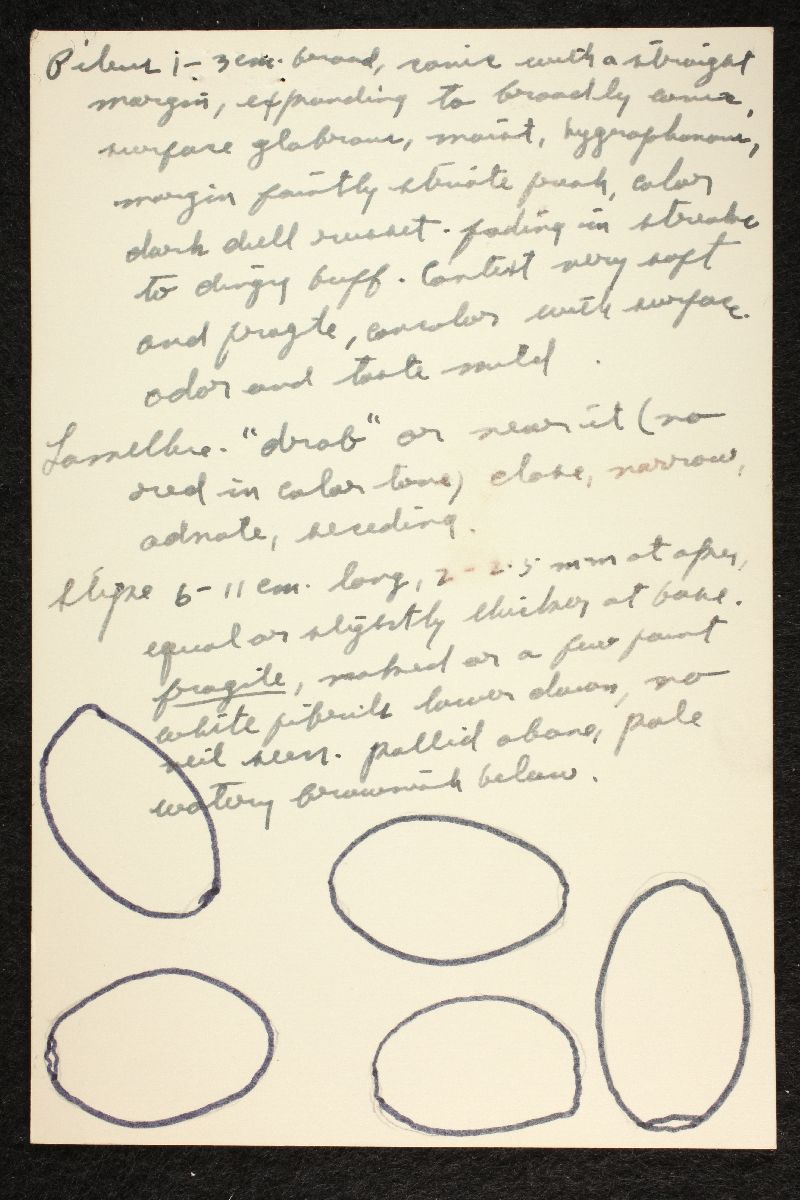 Pileus 1-3 cm. broad, conic with a straight
margin, expanding to broadly conic,
surface glabrous, moist, hygrophanous,
margin faintly striate fresh, color
dark dull russet. fading in streaks
to dingy buff. Context very soft
and fragile, concolor with surface.
odor and taste mild.
Lamellae. "drab" or near it (no
red in color tone) close, narrow,
adnate, seceding.
Stipe 6-11 cm. long, 2-2.5 mm at apex,
equal or slightly thicker at base.
fragile, naked or a few faint
white fibrils lower down, no
veil seen. pallid above, pale
watery brownish below.